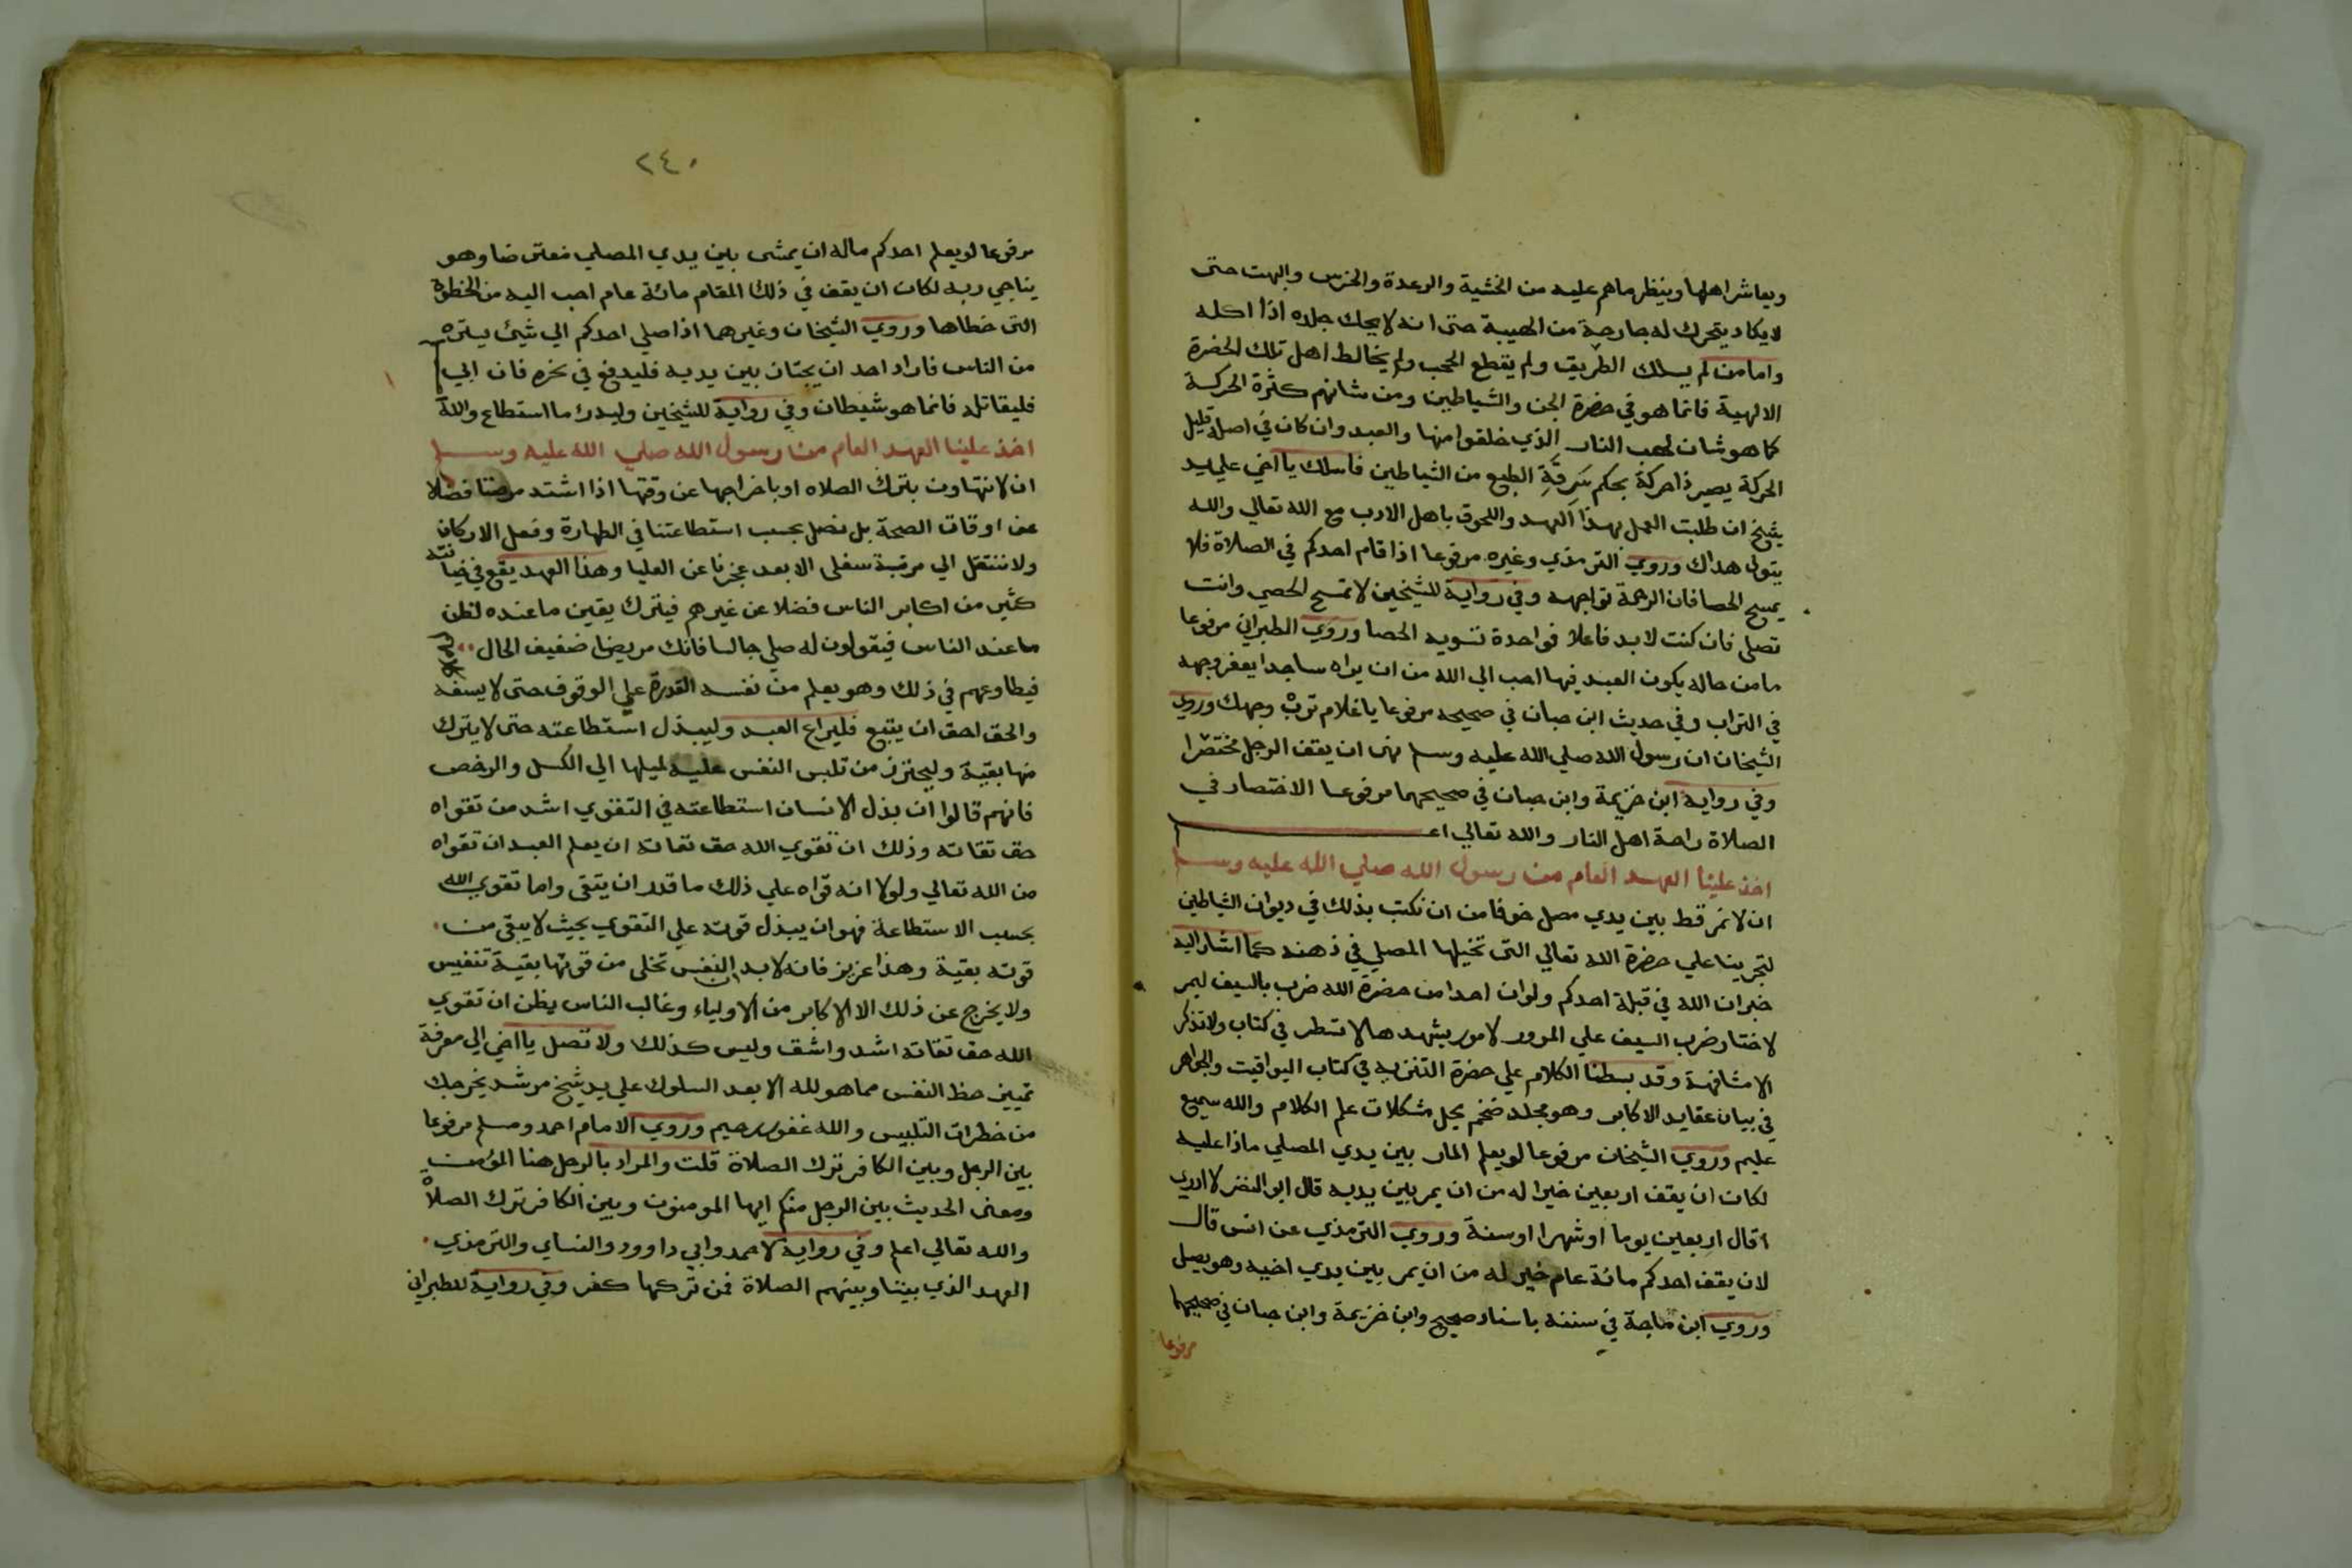 ويعاشر اهلها وينظر ماهم عليه من الخشية والرعدة والخرس والبهت حتى
لايكاد يتحرك له جارحة من الهيبة حتى انه لا يحك جلده اذا اكله
واما من لم يسلك الطريق ولم يقطع الحجب ولم يخالط اهل تلك الحضرة
الالهية فانما هو في حضرة الجن والشياطين ومن شانهم كثرة الحركة
كما هو شان لهب النار الذي خلقوا منها والعبد وان كان في اصله قليل
الحركة يصير ذا حركة بحكم سَرِقَةِ الطبع من الشياطين فاسلك يا اخي علي يد
شيخ ان طلبت العمل بهذا العهد واللحوق باهل الادب مع الله تعالي والله
يتولى هداك وروي الترمذي وغيره مرفوعا اذا قام احدكم في الصلاة فلا
يمسح الحصا فان الرحمة تواجهه وفي رواية للشيخين لا تمسح الحصي وانت
تصلي فان كنت لا بد فاعلا فواحدة تسوية الحصا وروي الطبراني مرفوعا
ما من حاله يكون العبد فيها احب الي الله من ان يراه ساجدا يعفر وجهه
في التراب وفي حديث ابن حبان في صحيحه مرفوعا يا غلام تربْ وجهك وروي
الشيخان ان رسول الله صلي الله عليه وسلم نهى ان يقف الرجل مختصرا
وفي رواية ابن خزيمة وابن حبان في صحيحهما مرفوعا الاختصار في
الصلاة راحة اهل النار والله تعالي اعلم
اخذ علينا العهد العام من رسول الله صلي الله عليه وسلم
ان لا نمر قط بين يدي مصل خوفا من ان نكتب بذلك في ديوان الشياطين
لتجرينا علي حضرة الله تعالي التى تخيلها المصلي في ذهنه كما اشار اليه
خبر ان الله في قبلة احدكم ولو ان احدا من حضرة الله ضرب بالسيف ليمر
لاختار ضرب السيف علي المرور لامور يشهدها لا تسطر في كتاب ولا تذكر
الا مشافهة وقد بسطنا الكلام علي حضرة التنزيه في كتاب اليواقيت والجواهر
في بيان عقايد الاكابر وهو مجلد ضخم يحل مشكلات علم الكلام والله سميع
عليم وروي الشيخان مرفوعا لو يعلم المار بين يدي المصلي ماذا عليه
لكان ان يقف اربعين خيرا له من ان يمر بين يديه قال ابو النضر لا ادري
اقال اربعين يوما او شهرا او سنة وروي الترمذي عن انس قال
لان يقف احدكم مائة عام خير له من ان يمر بين يدي اخيه وهو يصلي
وروي ابن ماجة في سننه باسناد صحيح وابن خزيمة وابن حبان في صحيحهما
مرفوعا
٢٤٠
مرفوعا لو يعلم احدكم ماله ان يمشى بين يدي المصلي معترضا وهو
يناجي ربه لكان ان يقف في ذلك المقام مائة عام احب اليه من الخطوة
التى خطاها وروي الشيخان وغيرهما اذا صلي احدكم الي شيئ يستره
من الناس فاراد احد ان يجتاز بين يديه فليدفع في نحره فان ابي
فليقاتله فانما هو شيطان وفي رواية للشيخين وليدرك ما استطاع والله
اخذ علينا العهد العام من رسول الله صلي الله عليه وسلم
ان لا نتهاون بترك الصلاه او باخراجها عن وقتها اذا اشتد مرضنا فضلا
عن اوقات الصحة بل نصلي بحسب استطاعتنا في الطهارة وفعل الاركان
ولا ننتقل الي مرتبة سفلى الا بعد عجزنا عن العليا وهذا العهد يقع في خيانته
كثير من اكابر الناس فضلا عن غيرهم فيترك يقين ما عنده لظن
ما عند الناس فيقولون له صلي جالسا فانك مريض ضعيف الحال
فيطاوعهم في ذلك وهو يعلم من نفسه القدرة علي الوقوف حتى لا يسفه
والحق احق ان يتبع فليراع العبد وليبذل استطاعته حتى لا يترك
منها بقية وليحترز من تلبس النفس عليه لميلها الي الكسل والرخص
فانهم قالوا ان بذل الانسان استطاعته في التقوي اشد من تقواه
حق تقاته وذلك ان تقوي الله حق تقاته ان يعلم العبد ان تقواه
من الله تعالي ولولا انه قواه علي ذلك ما قدر ان يتقى واما تقوي الله
بحسب الاستطاعة فهو ان يبذل قوته علي التقوي بحيث لا يبقى من
قوته بقية وهذا عزيز فانه لابد ان النفس تخلى من قوتها بقية تنفيس
ولا يخرج عن ذلك الا الاكابر من الاولياء وغالب الناس يظن ان تقوي
الله حق تقاته اشد واشق وليس كذلك ولا تصل يا اخي الي معرفة
تمييز حظ النفس مما هو لله الا بعد السلوك علي يد شيخ مرشد يخرجك
من خطرات التلبيس والله غفور رحيم وروي الامام احمد ومسلم مرفوعا
بين الرجل وبين الكافر ترك الصلاة قلت والمراد بالرجل هنا المؤمن
ومعنى الحديث بين الرجل منكم ايها المومنون وبين الكافر ترك الصلاة
والله تعالي اعلم وفي رواية لاحمد وابي داوود والنساي والترمذي
العهد الذي بيننا وبينهم الصلاة فمن تركها كفر وفي رواية للطبراني